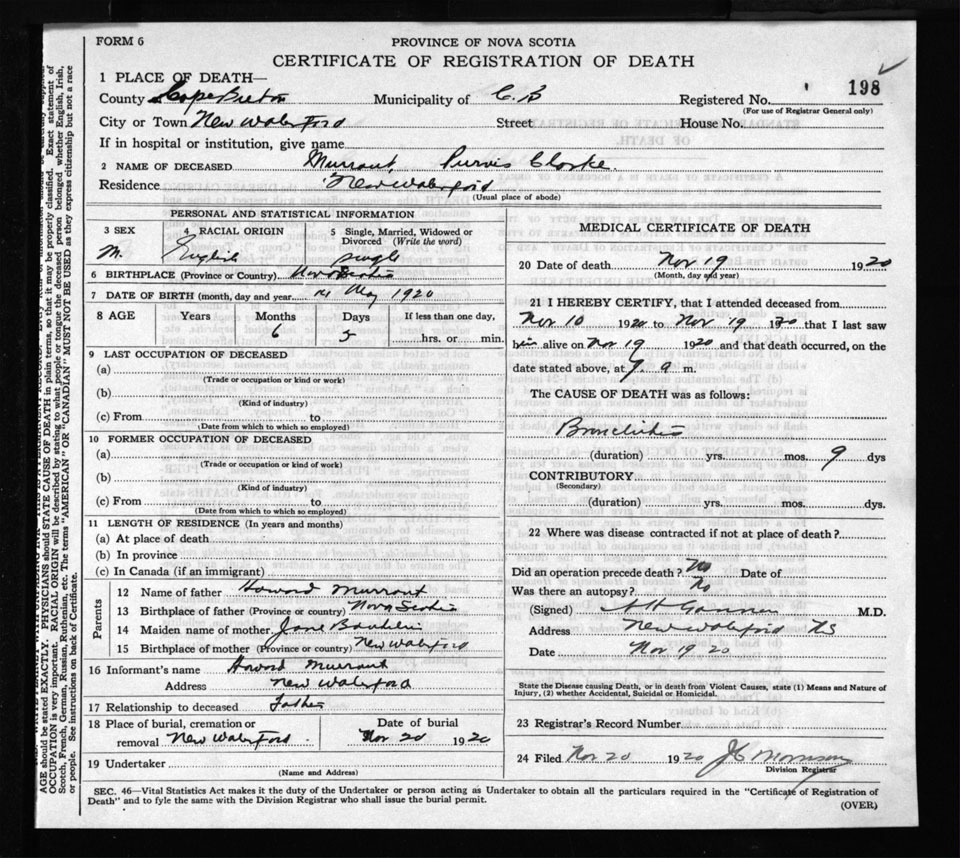 FORM 6
PROVINCE OF NOVA SCOTIA
CERTIFICATE OF REGISTRATION OF DEATH
1 PLACE OF DEATH—
198
County Cape Breton Municipality of C. B Registered No.
(For use of Registrar General only)
City or Town New Waterford Street House No.
If in hospital or institution, give name
2 NAME OF DECEASED Murrant, Purvis Clarke
Residence New Waterford
(Usual place of abode)
PERSONAL AND STATISTICAL INFORMATION
3 SEX
M.
4 RACIAL ORIGIN
English
5 Single, Married, Widowed or
Divorced (Write the word)
single
6 BIRTHPLACE (Province or Country) Nova Scotia
7 DATE OF BIRTH (month, day and year) 14 May 1920
8 AGE Years Months Days If less than one day,
6 5 hrs. or min.
9 LAST OCCUPATION OF DECEASED
(a)
(Trade or occupation or kind or work)
(b)
(Kind of industry)
(c) From to
(Date from which to which so employed)
10 FORMER OCCUPATION OF DECEASED
(a)
(Trade or occupation or kind of work)
(b)
(Kind of industry)
(c) From to
(Date from which to which so employed)
11 LENGTH OF RESIDENCE (In years and months)
(a) At place of death
(b) In province
(c) In Canada (if an immigrant)
Parents
12 Name of father Howard Murrant
13 Birthplace of father (Province or country) Nova Scotia
14 Maiden name of mother Jane
15 Birthplace of mother (Province or country) New Waterford
16 Informant's name Howard Murrant
Address New Waterford
17 Relationship to deceased Father
18 Place of burial, cremation or
removal New Waterford
Date of burial
Nov 20 1920
19 Undertaker
(Name and Address)
MEDICAL CERTIFICATE OF DEATH
20 Date of death Nov 19 1920
(Month, day and year)
21 I HEREBY CERTIFY, that I attended deceased from
Nov 10 1920 to Nov 19 1920 that I last saw
him alive on Nov 19 1920 and that death occurred, on the
date stated above, at 9 a m.
The CAUSE OF DEATH was as follows:
Bronchitis
(duration) yrs. mos. 9 dys
CONTRIBUTORY
(Secondary)
(duration) yrs. mos. dys.
22 Where was disease contracted if not at place of death?
Did an operation precede death? No Date of
Was there an autopsy? No
(Signed) M.D.
Address New Waterford NS
Date Nov 19 20
State the Disease causing Death, or in death from Violent Causes, state (1) Means and Nature of
Injury, (2) whether Accidental, Suicidal or Homicidal.
23 Registrar's Record Number
24 Filed Nov 20 1920
Division Registrar
SEC. 46—Vital Statistics Act makes it the duty of the Undertaker or person acting as Undertaker to obtain all the particulars required in the "Certificate of Registration of
Death" and to fyle the same with the Division Registrar who shall issue the burial permit.
(OVER)
AGE should be stated EXACTLY. PHYSICIANS should STATE CAUSE OF DEATH in plain terms, so that it may be properly classified. Exact statement of
OCCUPATION is very important. RACIAL ORIGIN will be described by stating to what people or tongue the deceased person belonged, whether English, Irish,
Scotch, French, German, Russian, Ruthenian, etc. The terms "AMERICAN" OR "CANADIAN" MUST NOT BE USED as they express citizenship but not a race
or people. See instructions on back of Certificate.